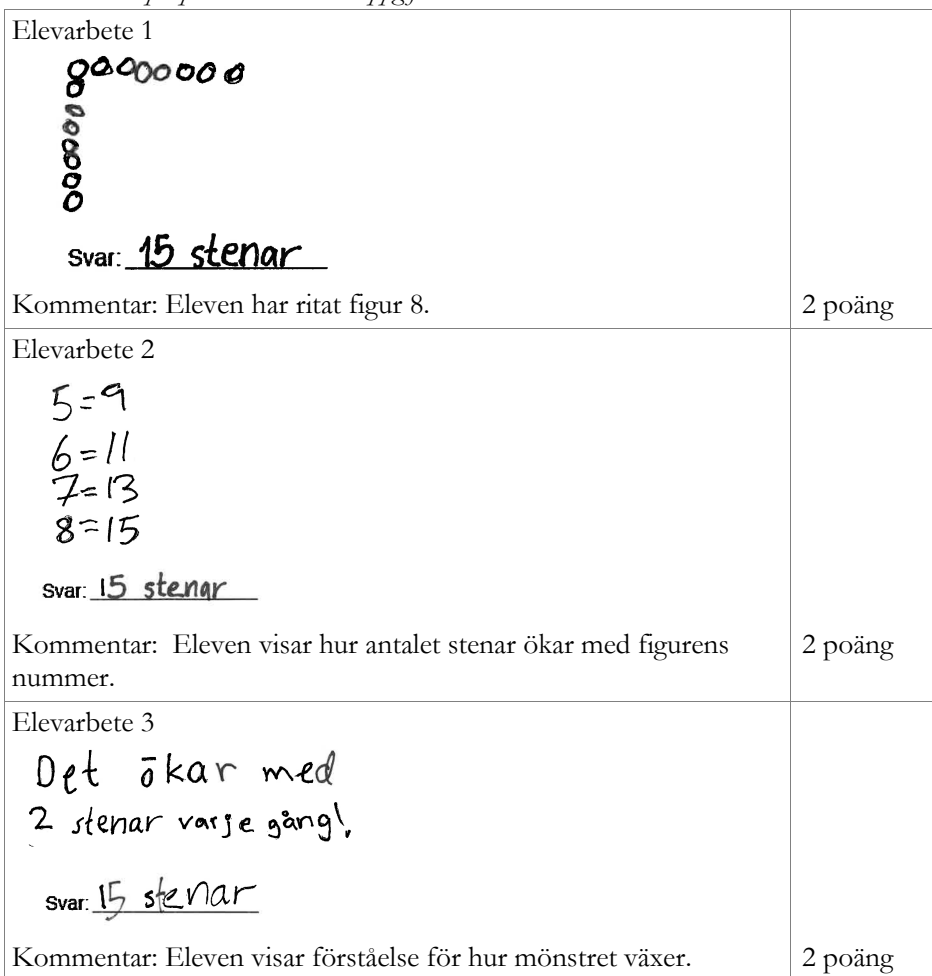 Elevarbete 1
Svar: 15 stenar
Kommentar: Eleven har ritat figur 8.
2 poäng
Elevarbete 2
5=9
6=11
7=13
8=15
Svar: 15 stenar
Kommentar: Eleven visar hur antalet stenar ökar med figurens
nummer.
2 poäng
Elevarbete 3
Det ökar med
2 stenar varje gång!
Svar: 15 stenar
Kommentar: Eleven visar förståelse för hur mönstret växer.
2 poäng